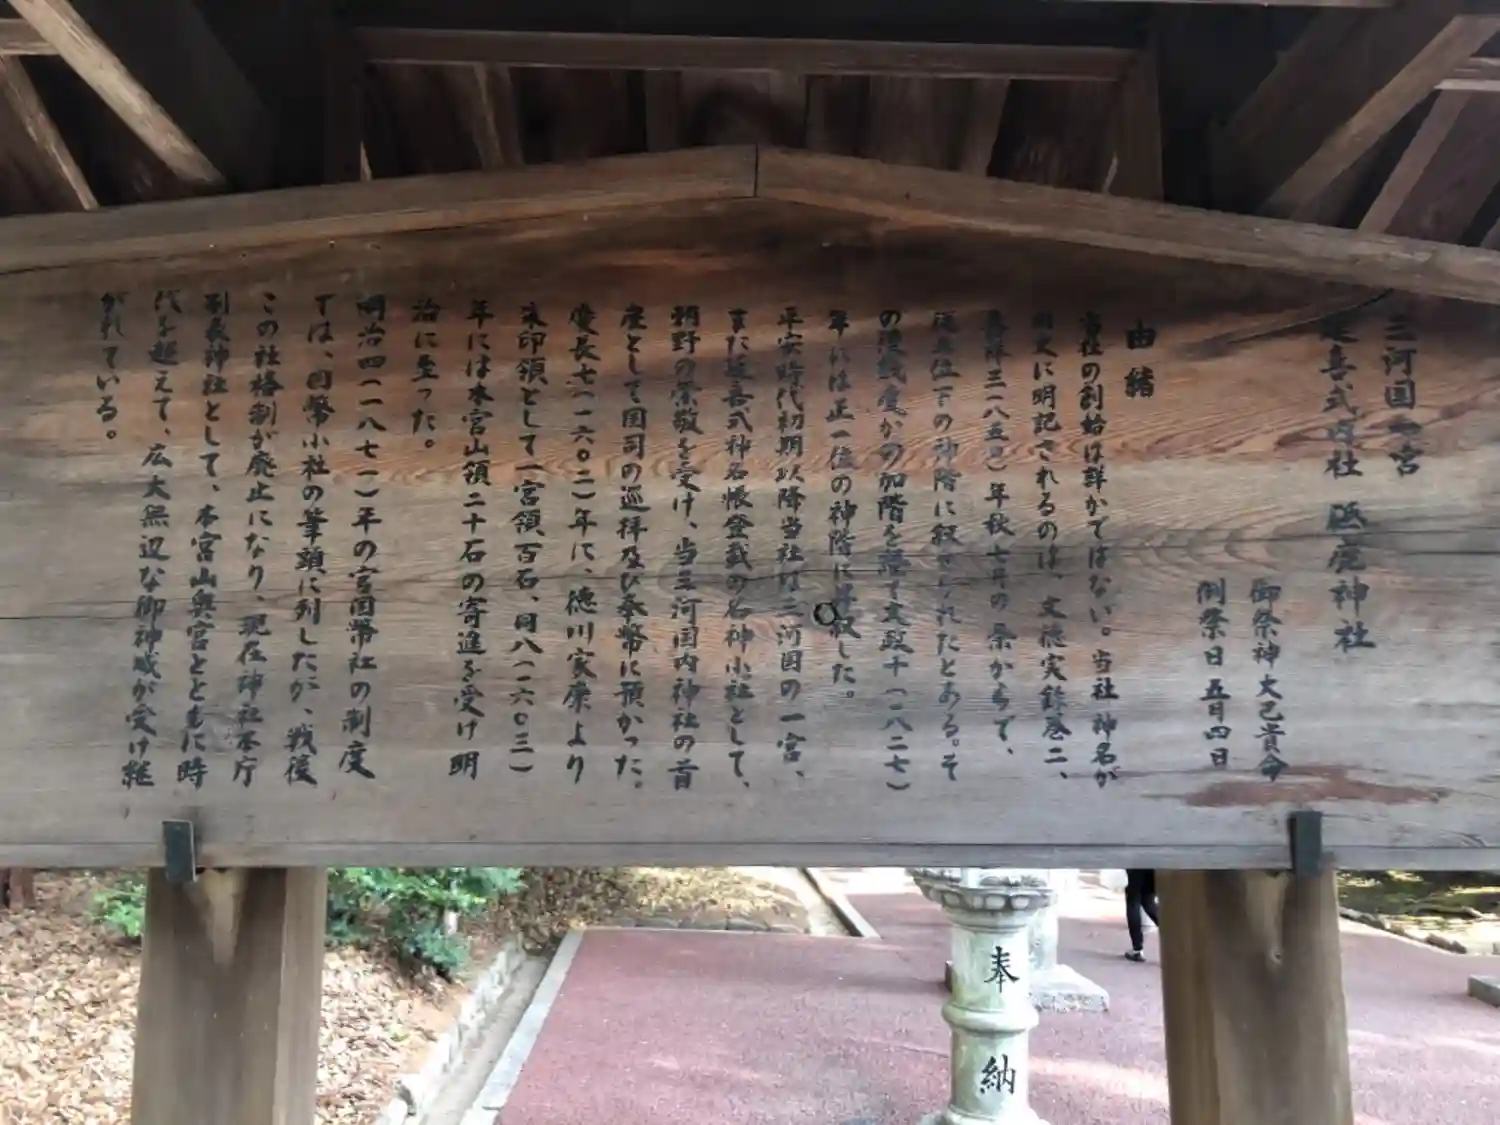 三河国一宮
延喜式内社 砥鹿神社
御祭神 大己貴命
例祭日 五月四日
由緒
当社の創始は詳かではない。当社神名が
国史に明記されるのは、文徳実録巻二、
嘉祥三(八五〇)年秋七月の条からで、
従五位下の神階に叙せられたとある。そ
の後幾度かの加階を経て文政十(一八二七)
年には正一位の神階に昇叙した。
平安時代初期以降当社は三河国の一宮、
また延喜式神名帳登載の名神小社として、
朝野の崇敬を受け、当三河国内神社の首
座として国司の巡拝及び奉幣に預かった。
慶長七(一六〇二)年に、徳川家康より
朱印領として一宮領百石、同八(一六〇三)
年には本宮山領二十石の寄進を受け明
治に至った。
明治四(一八七一)年の官国幣社の制度
では、国幣小社の筆頭に列したが、戦後
この社格制が廃止になり、現在神社本庁
別表神社として、本宮山奥宮とともに時
代を越えて、広大無辺な御神威が受け継
がれている。
奉納